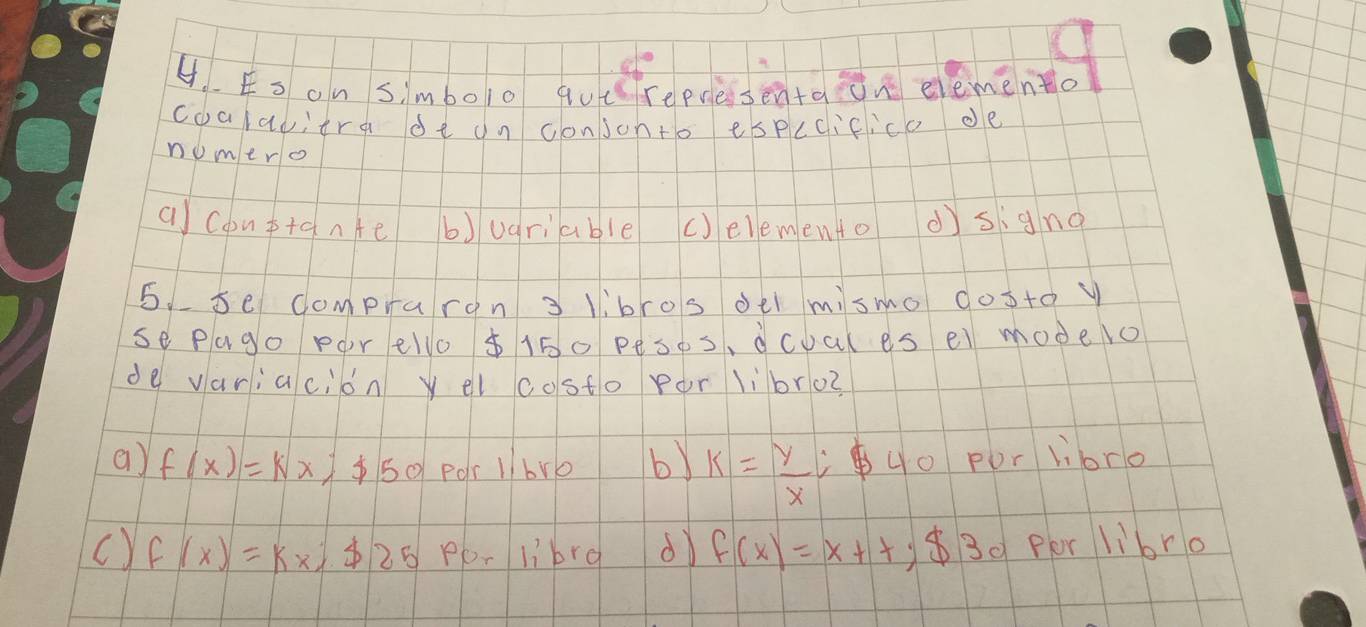 4.- Es un simbolo que representa un elemento
cualquiera de un conjunto especifico de
numero
a) Constante b) variable c) elemento d) signo
5.- se compraron 3 libros del mismo costo y
se pago por ello $ 150 pesos, ¿cual es el modelo
de variación y el costo por libro?
a) f(x) = Kx; $50 por libro b) K = y/x; $40 por libro
c) f(x) = Kx; $25 por libro d) f(x) = x + t; $30 por libro